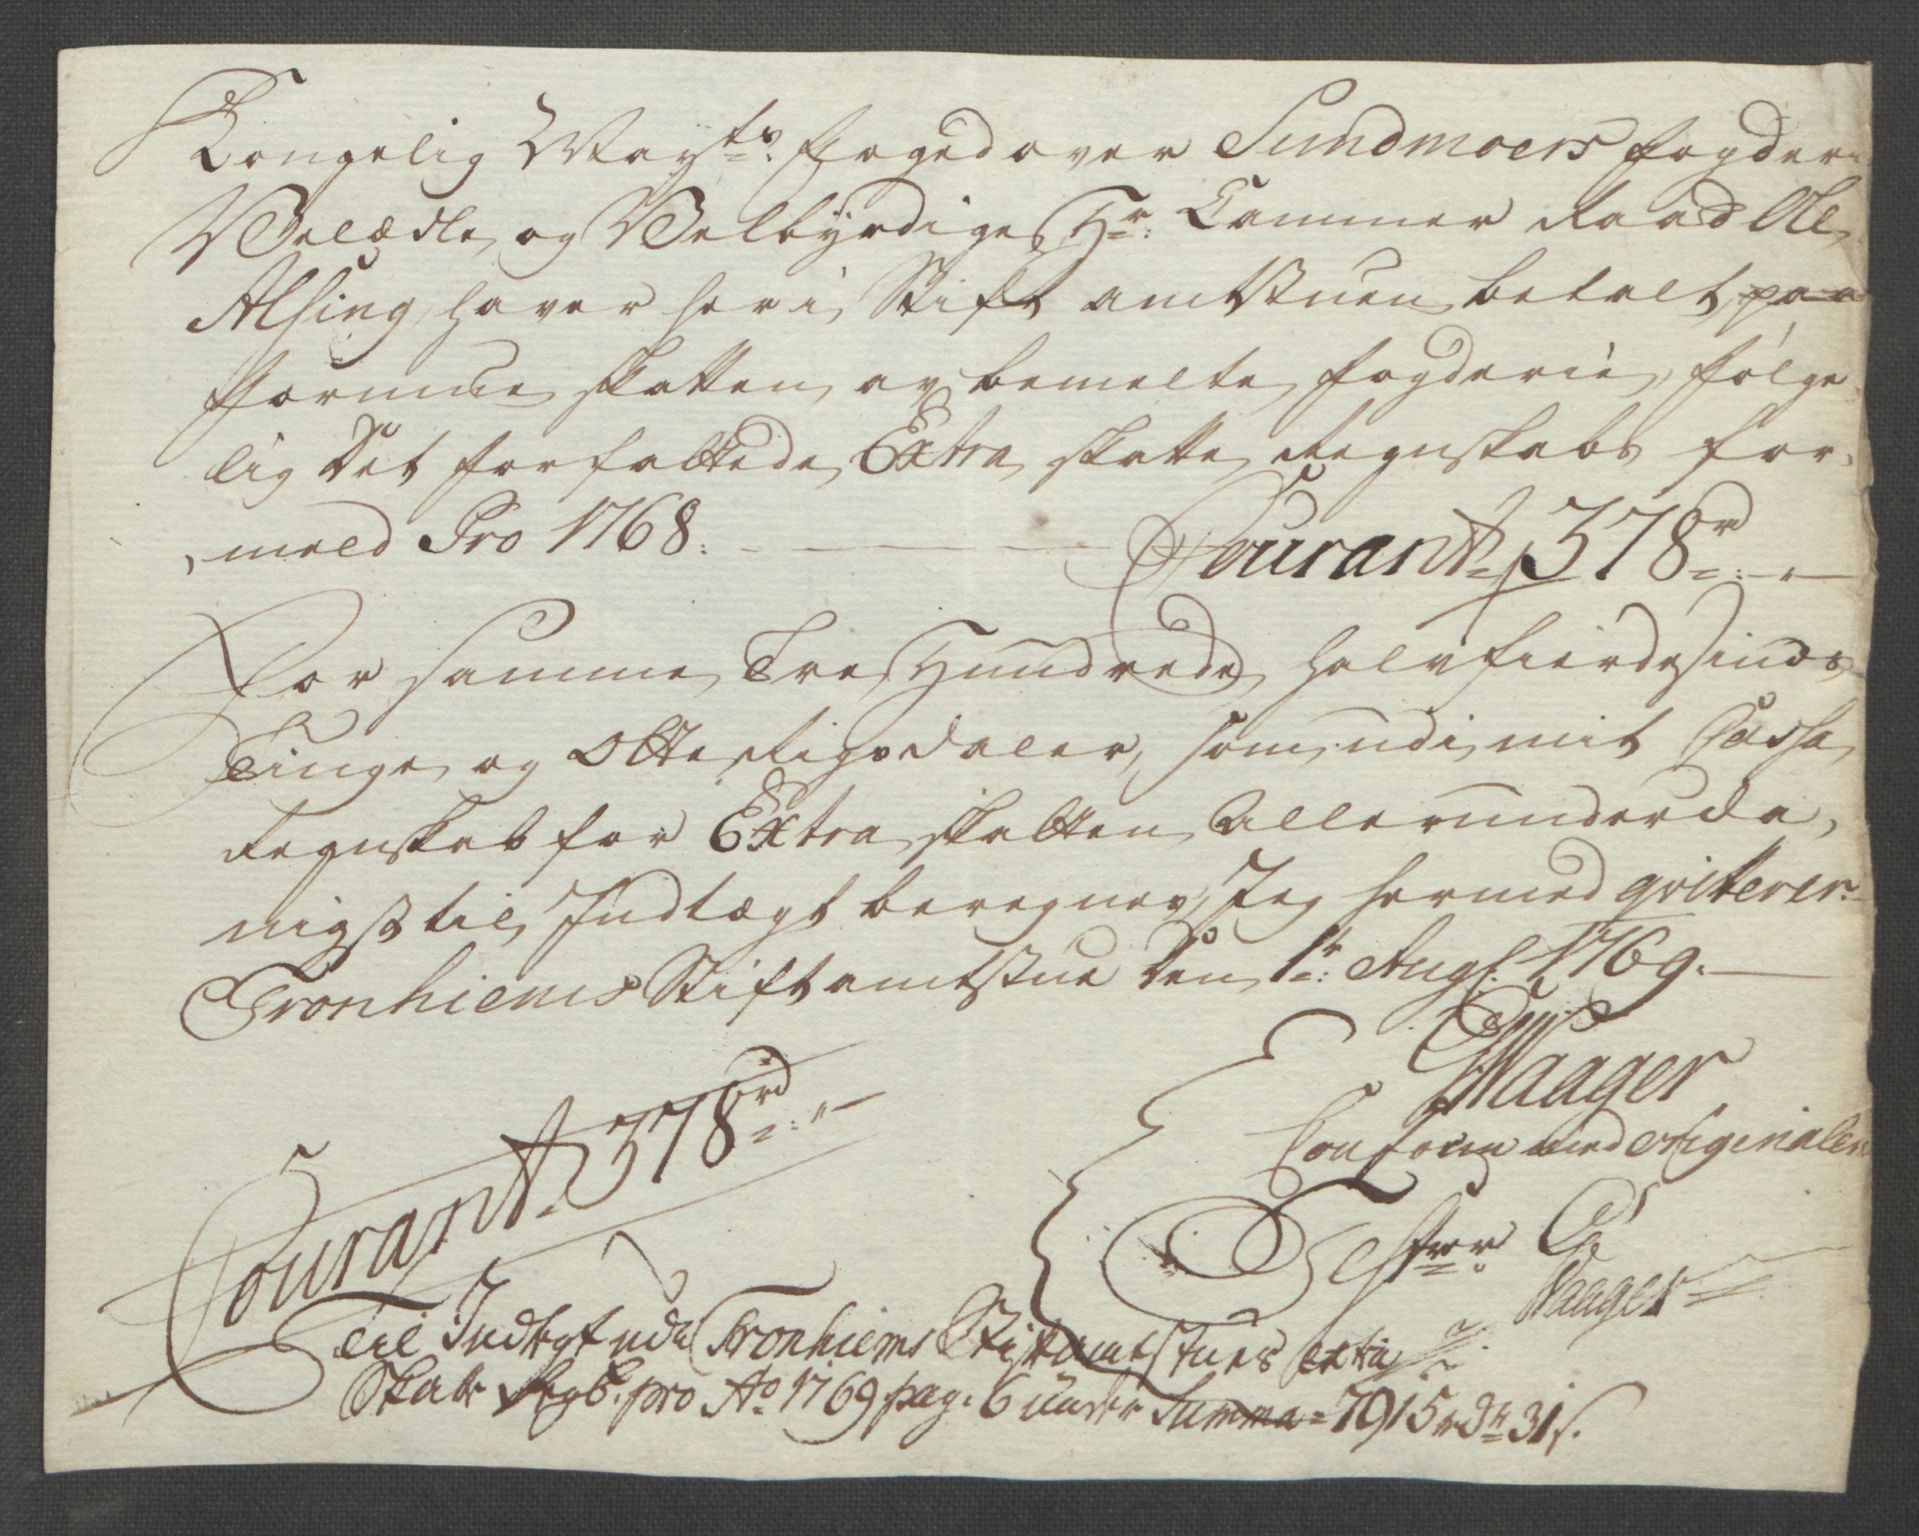 Kongelig Mayts. Foged over Sundmoers fogderi
Velædle og Velbyrdige Hr. Cammer Raad Ole
Alsing, haver her i Stift amtstuen betalt paa
Formue skatten av bemelte fogderie, følge
lig det forfattede Extra skatte Regnskabs for,
,meld Pro 1768. Courant 378 rd
For samme Tre Hundrede halvfierdesinds
Tiuge og Otte Rigsdaler, som udi mit Cassa
Regnskab for Extra skatten Allerunderda,
nigst til Indtægt beregnes, Jeg hermed qviterer.
Tronhiems Stiftamtstue den 1te. Augs. 1769.
Waager
Conform med originalen
Courant 378 rd
Testerer
Waager
Til Indtegt udi Tronhiems Stiftamtstues extra
Skatte Regb. pro Ao. 1769 pag. 6 under Summa = 7915 rd 31 s.